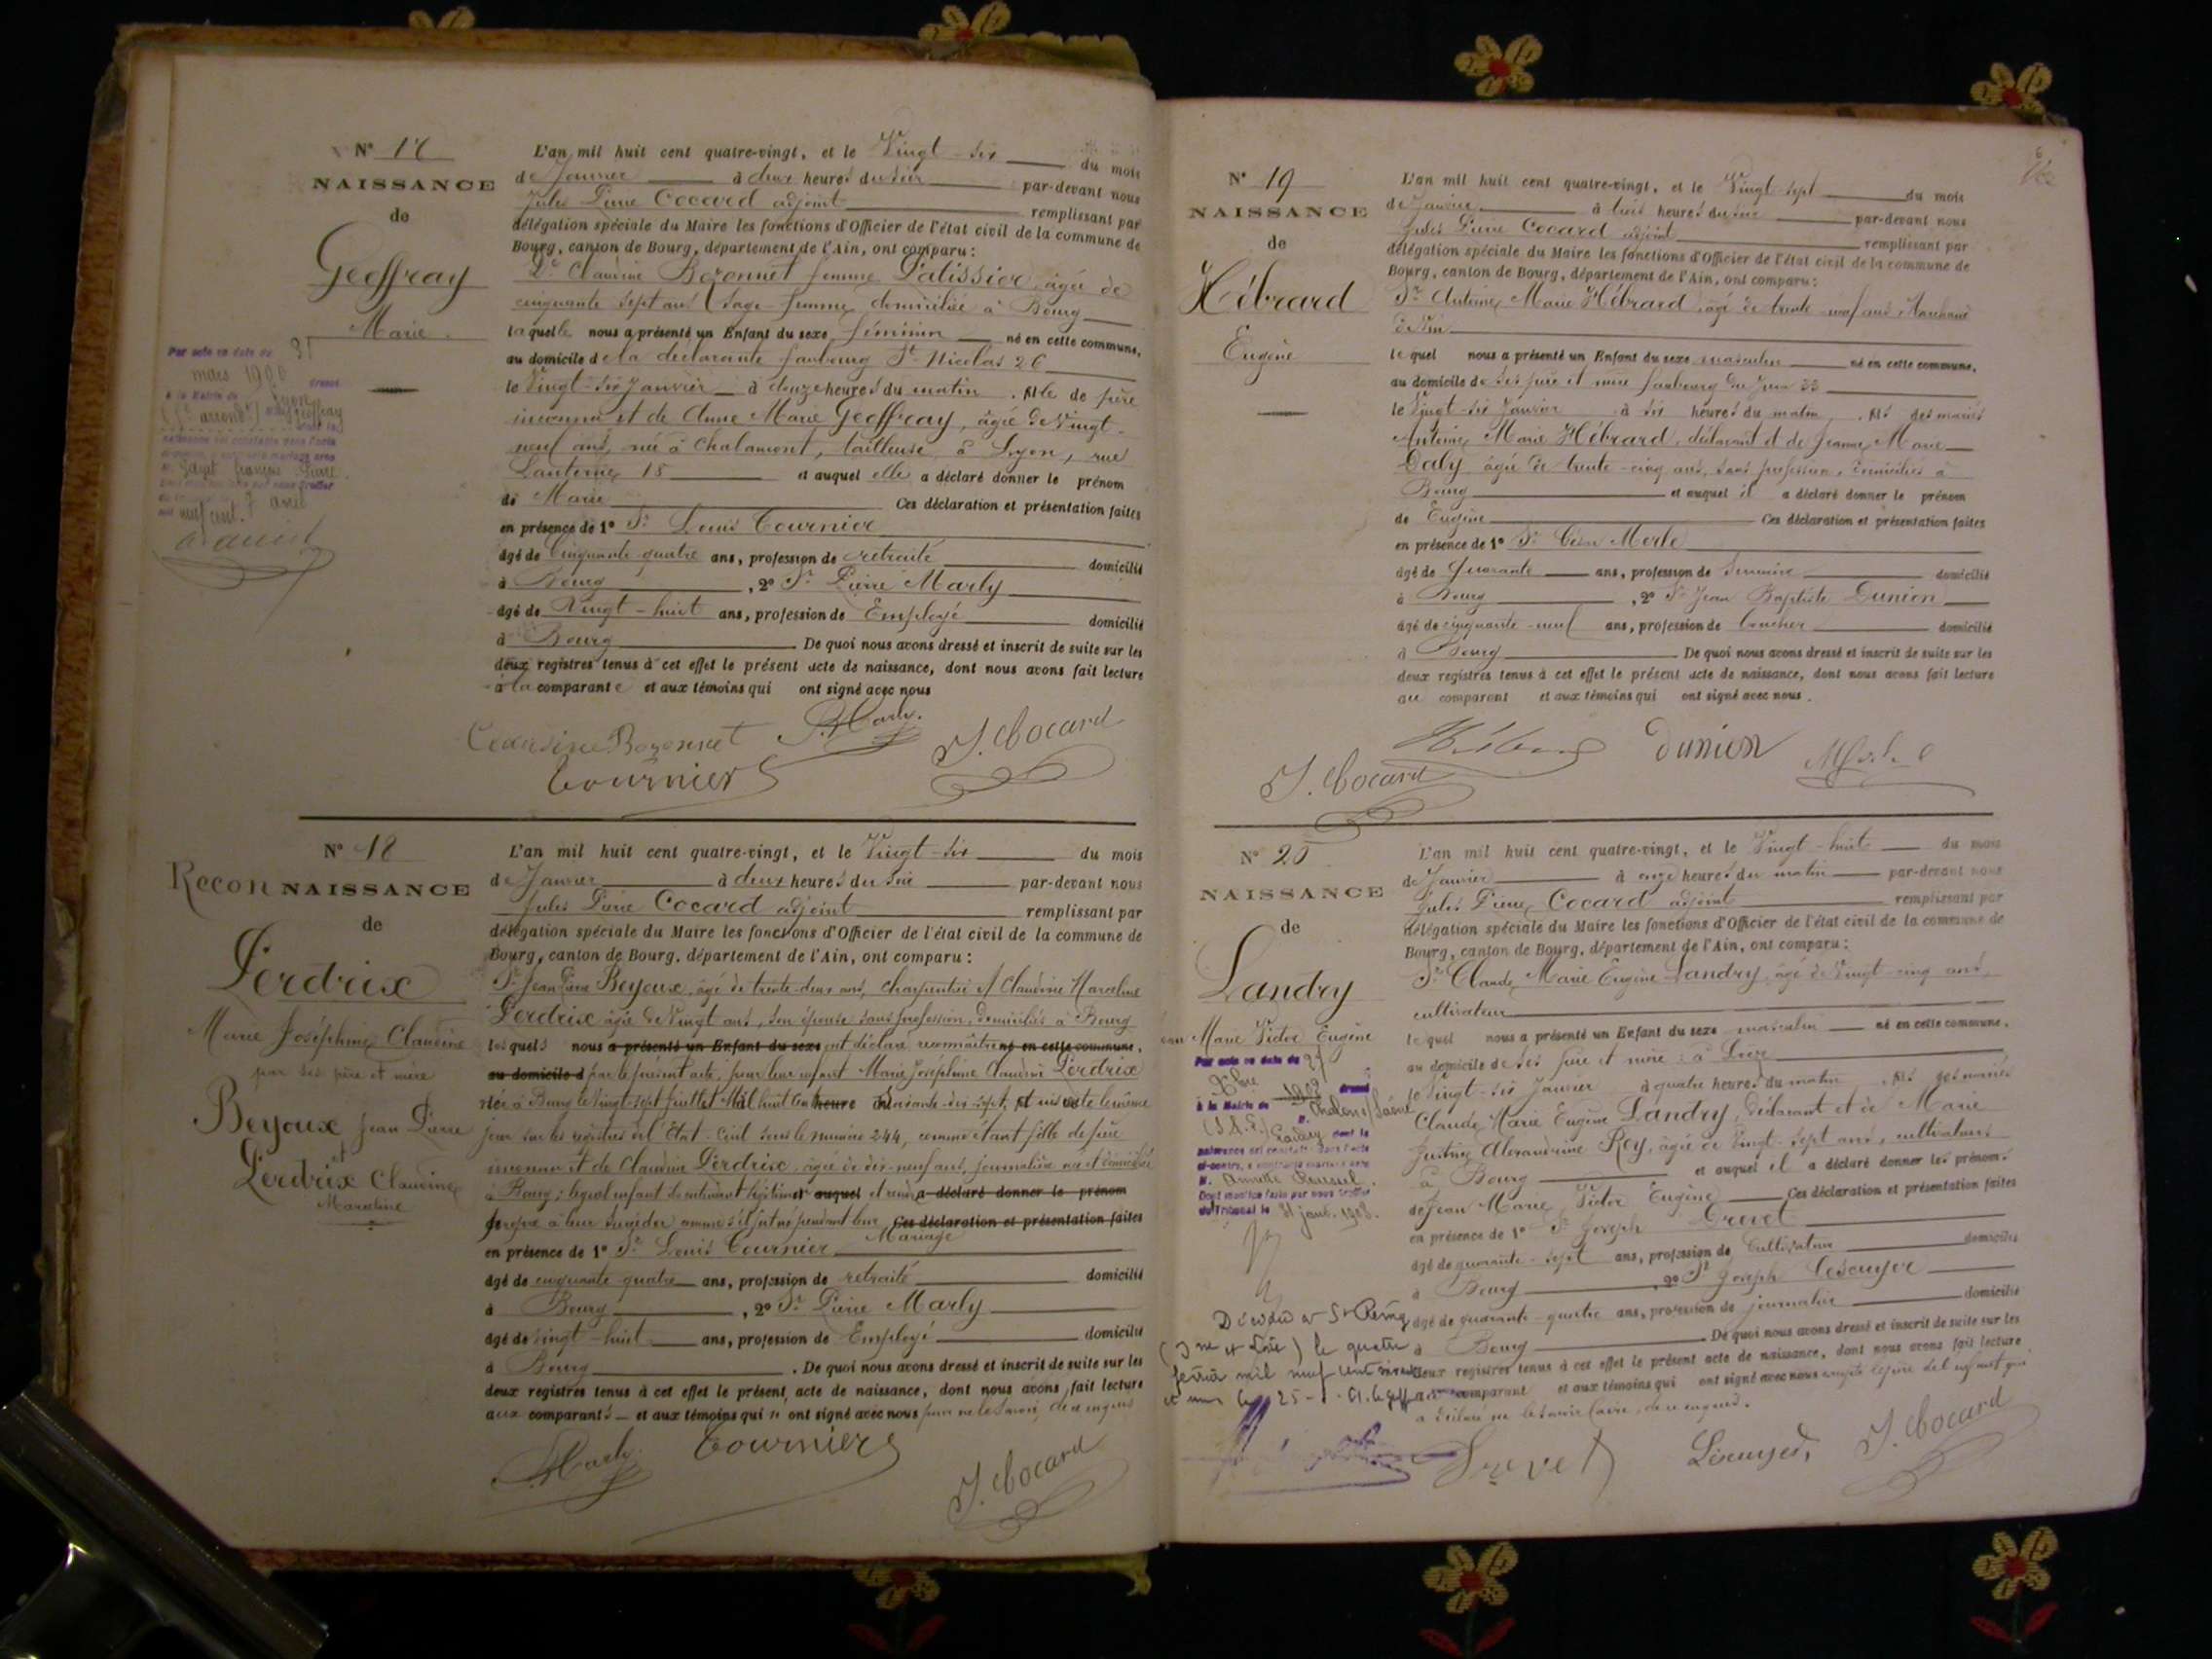 N° 17
NAISSANCE
de
Geoffray
Marie
Par acte en date du 31
mars 1900 dressé
à la Mairie de Lyon
Gayet françois Pierre
neuf cent. 7 avril
L'an mil huit cent quatre-vingt, et le Vingt-six du mois
de Janvier à deux heures du soir par-devant nous
Jules Pierre Cocard adjoint remplissant par
délégation spéciale du Maire les fonctions d'Officier de l'état civil de la commune de
Bourg, canton de Bourg, département de l'Ain, ont comparu:
De Claudine Bozonnet femme Palissier, âgée de
cinquante sept ans Sage-femme domiciliée à Bourg
laquelle nous a présenté un Enfant du sexe féminin né en cette commune,
au domicile de la déclarante faubourg St Nicolas 26
le Vingt-six Janvier à douze heures du matin. fille de père
inconnu et de Anne Marie Geoffray, âgée de Vingt-
neuf ans, née à Chalamont, tailleuse à Lyon, rue
Lanterne 15 et auquel elle a déclaré donner le prénom
de Marie Ces déclaration et présentation faites
en présence de 1° Sr Louis Tournier
âgé de Cinquante quatre ans, profession de retraité domicilié
à Bourg, 2° Sr Pierre Marly
âgé de Vingt-huit ans, profession de Employé domicilié
à Bourg De quoi nous avons dressé et inscrit de suite sur les
deux registres tenus à cet effet le présent acte de naissance, dont nous avons fait lecture
à la comparante et aux témoins qui ont signé avec nous
Claudine Bozonnet P. Marly. J. Cocard
Tournier
N° 18
Recon NAISSANCE
de
Perdrix
Marie Joséphine Claudine
par ses père et mère
Beyoux Jean Pierre
et
Perdrix Claudine
Marceline
L'an mil huit cent quatre-vingt, et le Vingt-six du mois
de Janvier à deux heures du soir par-devant nous
Jules Pierre Cocard adjoint remplissant par
délégation spéciale du Maire les fonctions d'Officier de l'état civil de la commune de
Bourg, canton de Bourg, département de l'Ain, ont comparu:
Sr Jean Pierre Beyoux, âgé de trente-deux ans, Charpentier et Claudine Marceline
Perdrix âgée de Vingt ans, son épouse sans profession, domiciliés à Bourg
lesquels nous a présenté un Enfant du sexe ont déclaré reconnaître né en cette commune,
au domicile d par le présent acte, pour leur enfant Marie Joséphine Claudine Perdrix
née à Bourg le Vingt-sept Juillet Mil huit cent heure soixante-dix-sept, et inscrite le même
jour sur les registres de l'Etat-Civil sous le numéro 244, comme étant fille de père
inconnu et de Claudine Perdrix, âgée de dix-neuf ans, journalière née et domiciliée
à Bourg; lequel enfant ils entendent légitimer auquel et rendre a déclaré donner le prénom
propre à leur succéder comme s'il fut né pendant leur Ces déclaration et présentation faites
Mariage
en présence de 1° Sr Louis Tournier
âgé de cinquante quatre ans, profession de retraité domicilié
à Bourg, 2° Sr Pierre Marly
âgé de vingt-huit ans, profession de Employé domicilié
à Bourg. De quoi nous avons dressé et inscrit de suite sur les
deux registres tenus à cet effet le présent acte de naissance, dont nous avons fait lecture
aux comparants et aux témoins qui ont signé avec nous
P. Marly Tournier J. Cocard
N° 19
NAISSANCE
de
Hébrard
Eugène
L'an mil huit cent quatre-vingt, et le Vingt-sept du mois
de Janvier à trois heures du soir par-devant nous
Jules Pierre Cocard adjoint remplissant par
délégation spéciale du Maire les fonctions d'Officier de l'état civil de la commune de
Bourg, canton de Bourg, département de l'Ain, ont comparu:
Sr Antoine Marie Hébrard, âgé de trente-neuf ans Marchand
de Vin
lequel nous a présenté un Enfant du sexe masculin né en cette commune,
au domicile de ses père et mère faubourg du Jura 33
le Vingt-six Janvier à six heures du matin. fils des mariés
Antoine Marie Hébrard, déclarant et de Jeanne Marie
Daly âgée de trente-cinq ans, sans profession, domiciliés à
Bourg et auquel il a déclaré donner le prénom
de Eugène Ces déclaration et présentation faites
en présence de 1° Sr Merle
âgé de Quarante ans, profession de domicilié
à Bourg, 2° Sr Jean Baptiste Dunion
âgé de cinquante-neuf ans, profession de boucher domicilié
à Bourg De quoi nous avons dressé et inscrit de suite sur les
deux registres tenus à cet effet le présent acte de naissance, dont nous avons fait lecture
au comparant et aux témoins qui ont signé avec nous.
Hébrard Dunion Merle
J. Cocard
N° 20
NAISSANCE
de
Landry
Jean Marie Victor Eugène
Par acte en date du 27
9bre 1902 dressé
à la Mairie de Chalon s/ Saône
(S.&L.) Landry dont la
Dont mention faite par nous Greffier
du Tribunal le 31 janv. 1903.
Décédé à St Rémy
(Sne et Loire) le quatre
février mil neuf cent soixante
et un
L'an mil huit cent quatre-vingt, et le Vingt-huit du mois
de Janvier à onze heures du matin par-devant nous
Jules Pierre Cocard adjoint remplissant par
délégation spéciale du Maire les fonctions d'Officier de l'état civil de la commune de
Bourg, canton de Bourg, département de l'Ain, ont comparu:
Sr Claude Marie Eugène Landry, âgé de Vingt-cinq ans,
cultivateur
lequel nous a présenté un Enfant du sexe masculin né en cette commune,
au domicile de ses père et mère: à
le Vingt-six Janvier à quatre heures du matin, fils des mariés
Claude Marie Eugène Landry, déclarant et de Marie
Justine Alexandrine Rey, âgée de Vingt-sept ans, cultivateurs
à Bourg et auquel il a déclaré donner les prénoms
de Jean Marie Victor Eugène Ces déclaration et présentation faites
en présence de 1° Sr Joseph Grevet
âgé de quarante-sept ans, profession de Cultivateur domicilié
à Bourg, 2° Sr Joseph Lécuyer
âgé de quarante-quatre ans, profession de journalier domicilié
à Bourg De quoi nous avons dressé et inscrit de suite sur les
deux registres tenus à cet effet le présent acte de naissance, dont nous avons fait lecture
au comparant et aux témoins qui ont signé avec nous excepté le père de l'enfant qui
a déclaré ne le savoir faire, de ce enquis.
Grevet Lécuyer J. Cocard